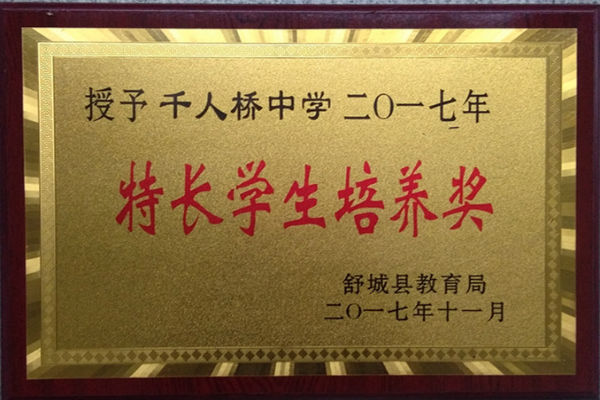 授予 千人桥中学 二〇一七年
特长学生培养奖
舒城县教育局
二〇一七年十一月